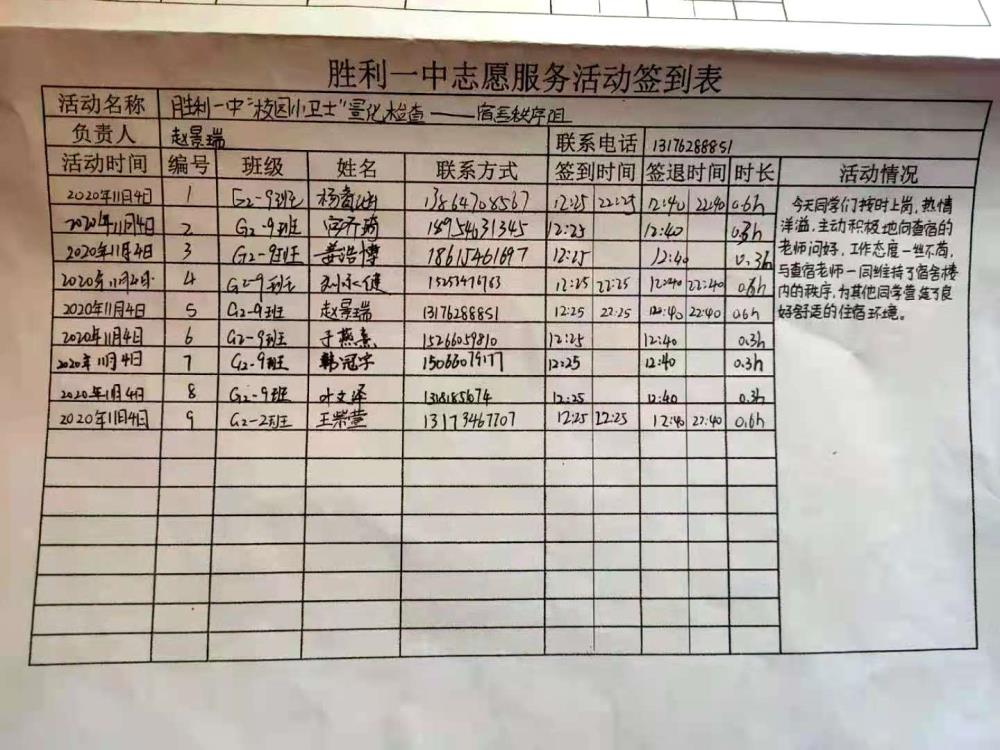 胜利一中志愿服务活动签到表
活动名称 胜利一中“校园小卫士”量化检查——宿舍秩序组
负责人 赵景瑞 联系电话 13176288851
活动时间 编号 班级 姓名 联系方式 签到时间 签退时间 时长 活动情况
2020年11月4日 1 G2-9班 13864708567 12:25 22:25 12:40 22:40 0.6h
2020年11月4日 2 G2-9班 18954631345 12:25 12:40 0.3h
2020年11月4日 3 G2-9班 姜浩博 18615461697 12:25 12:40 0.3h
2020年11月4日 4 G2-9班 15253476763 12:25 22:25 12:40 22:40 0.6h
2020年11月4日 5 G2-9班 赵景瑞 13176288851 12:25 22:25 12:40 22:40 0.6h
2020年11月4日 6 G2-9班 于燕熹 15266059810 12:25 12:40 0.3h
2020年11月4日 7 G2-9班 韩冠宇 12:25 12:40 0.3h
2020年11月4日 8 G2-9班 叶文泽 12:25 12:40 0.3h
2020年11月4日 9 G2-2班 王紫萱 13173467707 12:25 22:25 12:40 22:40 0.6h
今天同学们按时上岗，热情
洋溢，主动积极地向查宿的
老师问好，工作态度一丝不苟，
与查宿老师一同维持了宿舍楼
内的秩序，为其他同学营造了良
好舒适的住宿环境。